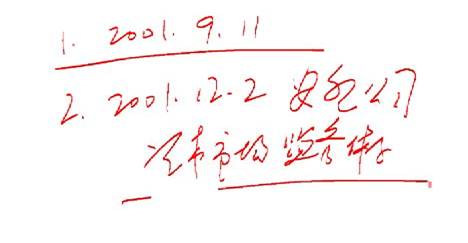 1. 2001.9.11
2. 2001.12.2 安然公司
证券市场监管体